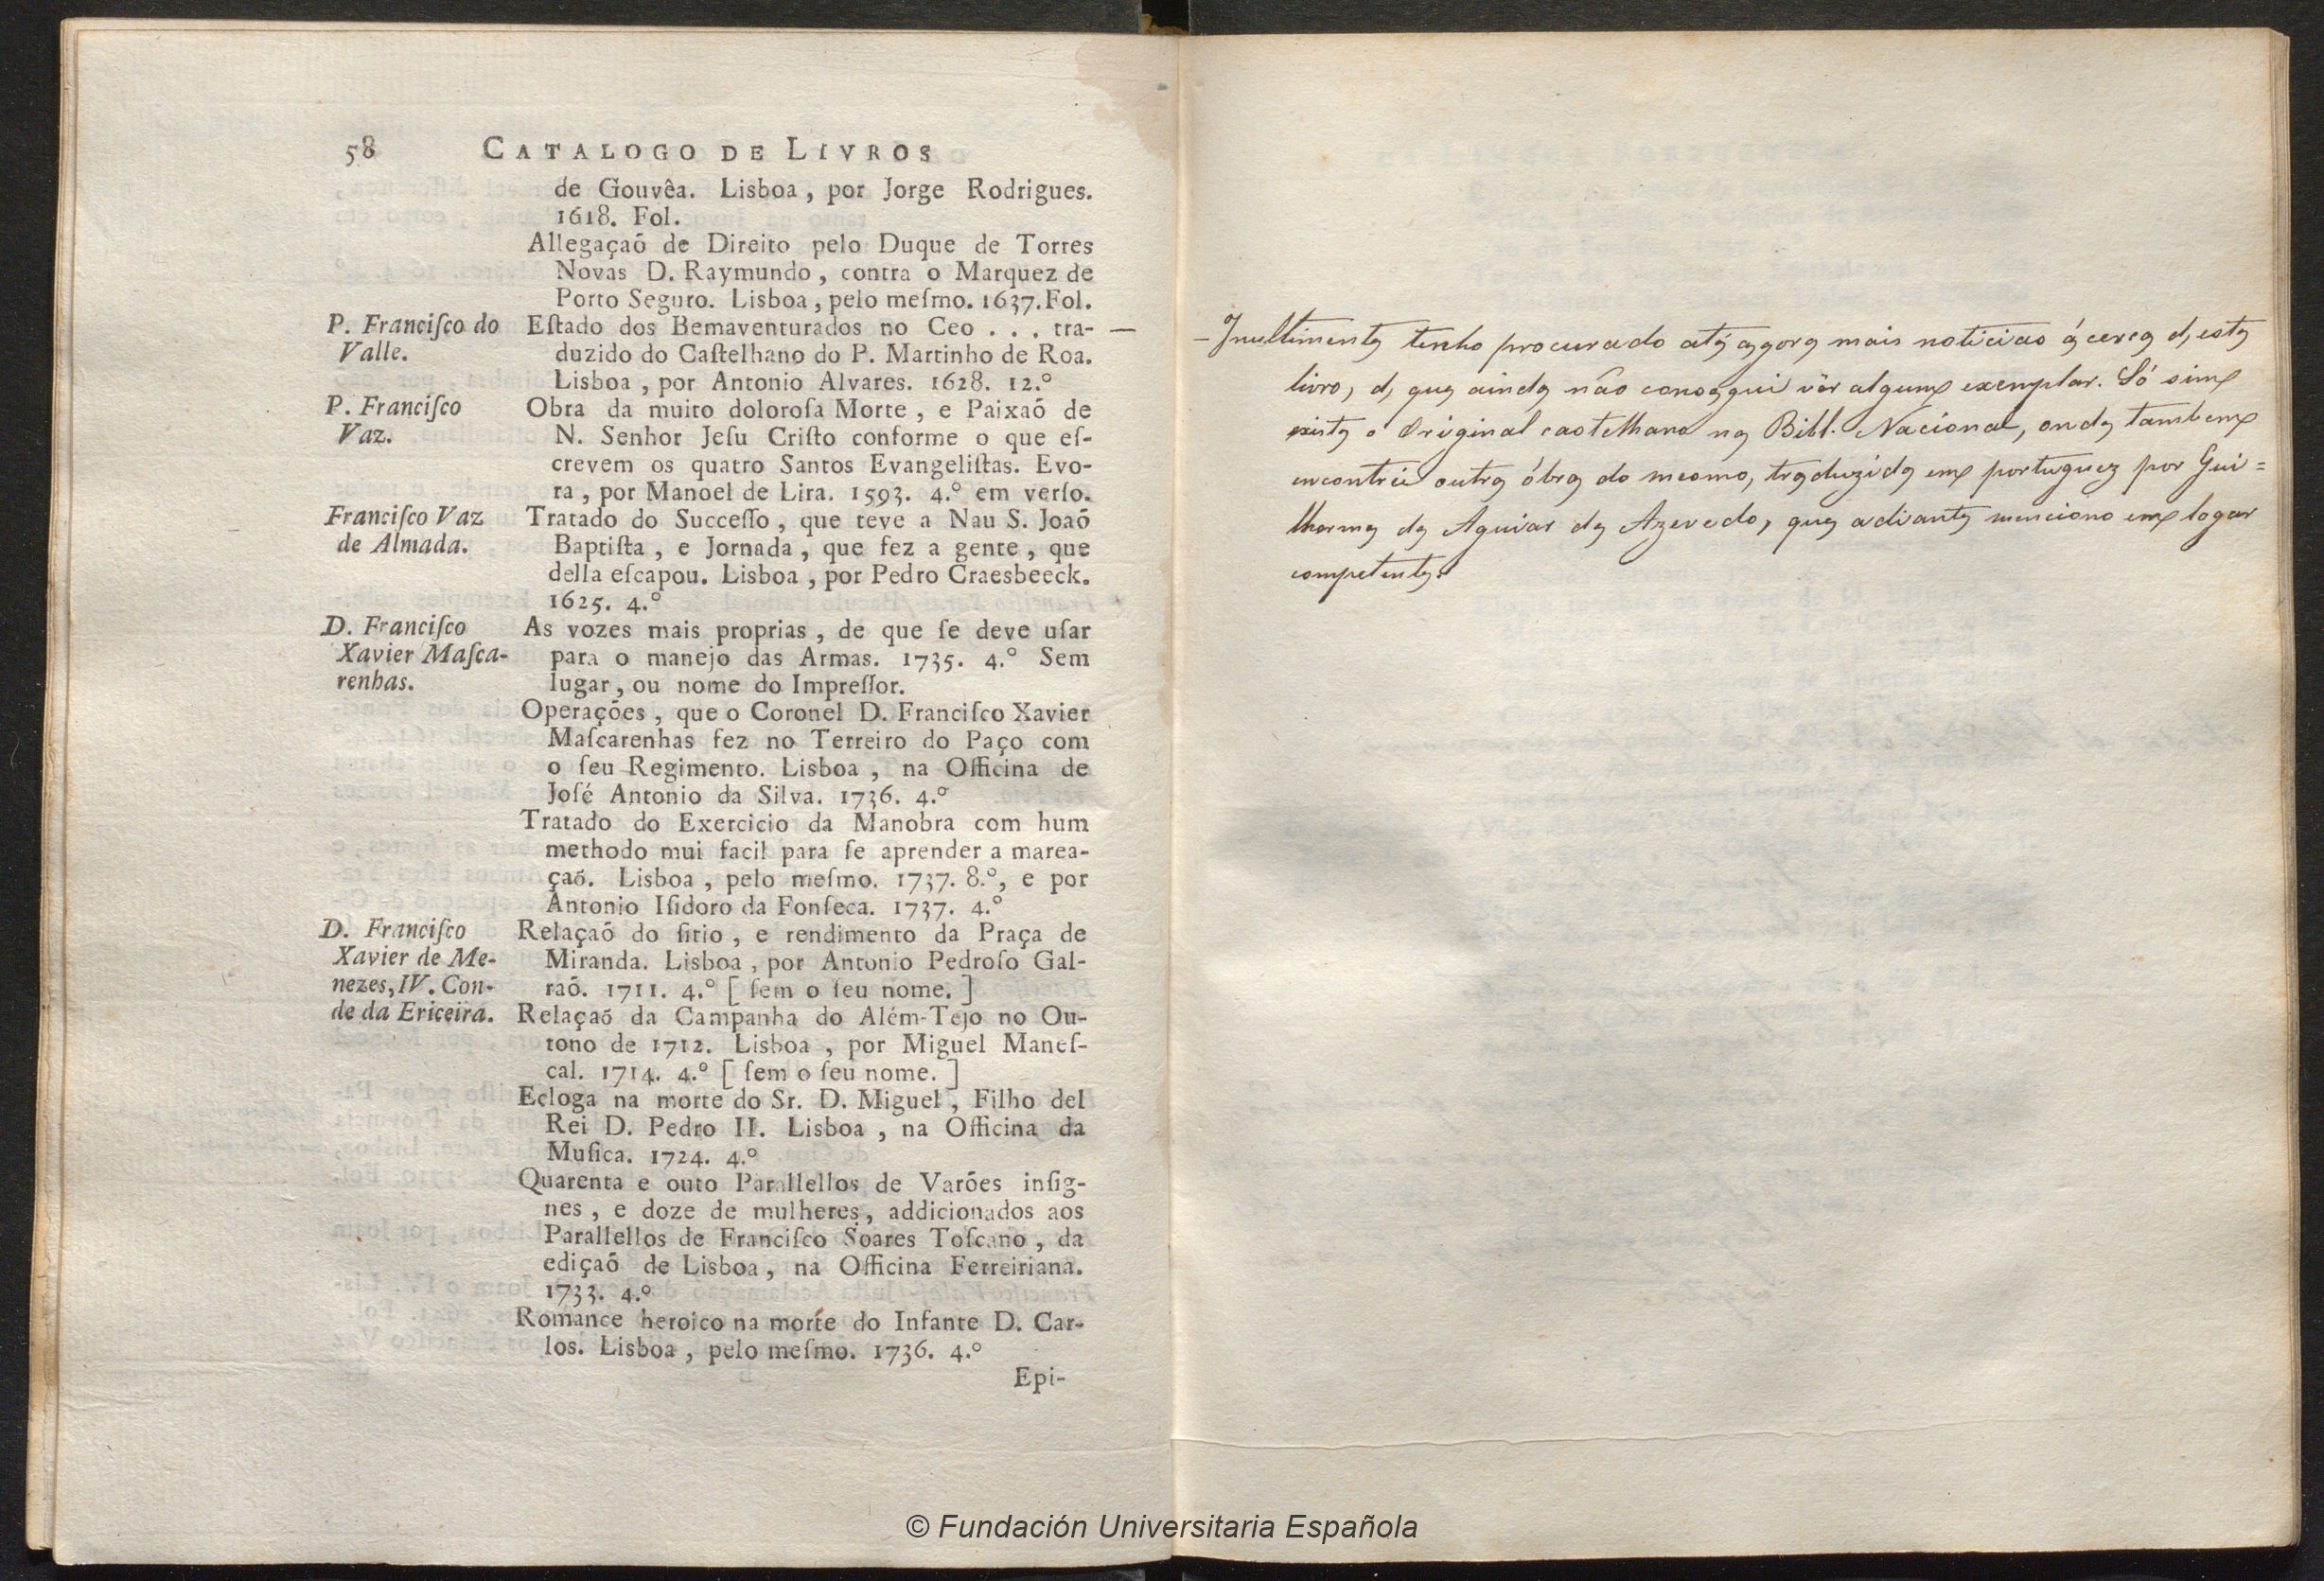 58 CATALOGO DE LIVROS
de Gouvêa. Lisboa, por Jorge Rodrigues.
1618. Fol.
Allegaçaõ de Direito pelo Duque de Torres
Novas D. Raymundo, contra o Marquez de
Porto Seguro. Lisboa, pelo meſmo. 1637. Fol.
P. Franciſco do Eſtado dos Bemaventurados no Ceo . . . tra- —
Valle. duzido do Caſtelhano do P. Martinho de Roa.
Lisboa, por Antonio Alvares. 1628. 12.º
P. Franciſco Obra da muito doloroſa Morte, e Paixaõ de
Vaz. N. Senhor Jeſu Criſto conforme o que eſ-
crevem os quatro Santos Evangeliſtas. Evo-
ra, por Manoel de Lira. 1593. 4.º em verſo.
Franciſco Vaz Tratado do Succeſſo, que teve a Nau S. Joaõ
de Almada. Baptiſta, e Jornada, que fez a gente, que
della eſcapou. Lisboa, por Pedro Craesbeeck.
1625. 4.º
D. Franciſco As vozes mais proprias, de que ſe deve uſar
Xavier Maſca- para o manejo das Armas. 1735. 4.º Sem
renhas. lugar, ou nome do Impreſſor.
Operações, que o Coronel D. Franciſco Xavier
Maſcarenhas fez no Terreiro do Paço com
o ſeu Regimento. Lisboa, na Officina de
Joſé Antonio da Silva. 1736. 4.º
Tratado do Exercicio da Manobra com hum
methodo mui facil para ſe aprender a marea-
çaõ. Lisboa, pelo meſmo. 1737. 8.º, e por
Antonio Iſidoro da Fonſeca. 1737. 4.º
D. Franciſco Relaçaõ do ſitio, e rendimento da Praça de
Xavier de Me- Miranda. Lisboa, por Antonio Pedroſo Gal-
nezes, IV. Con- raõ. 1711. 4.º [ ſem o ſeu nome. ]
de da Ericeira. Relaçaõ da Campanha do Além-Tejo no Ou-
tono de 1712. Lisboa, por Miguel Maneſ-
cal. 1714. 4.º [ ſem o ſeu nome. ]
Ecloga na morte do Sr. D. Miguel, Filho del
Rei D. Pedro II. Lisboa, na Officina da
Muſica. 1724. 4.º
Quarenta e outo Parallellos de Varões inſig-
nes, e doze de mulheres, addicionados aos
Parallellos de Franciſco Soares Toſcano, da
ediçaõ de Lisboa, na Officina Ferreiriana.
1733. 4.º
Romance heroico na morte do Infante D. Car-
los. Lisboa, pelo meſmo. 1736. 4.º
Epi-
– Inultimente tenho procurado até agora mais noticias ácerca d, este
livro, d, que ainda não consegui vêr algum exemplar. Só sim
existe o Original castelhano na Bibl. Nacional, onde tambem
encontrei outra óbra do mesmo, traduzida em portuguez por Gui=
lherme de Aguiar de Azevedo, que adiante menciono em logar
competente.
© Fundación Universitaria Española